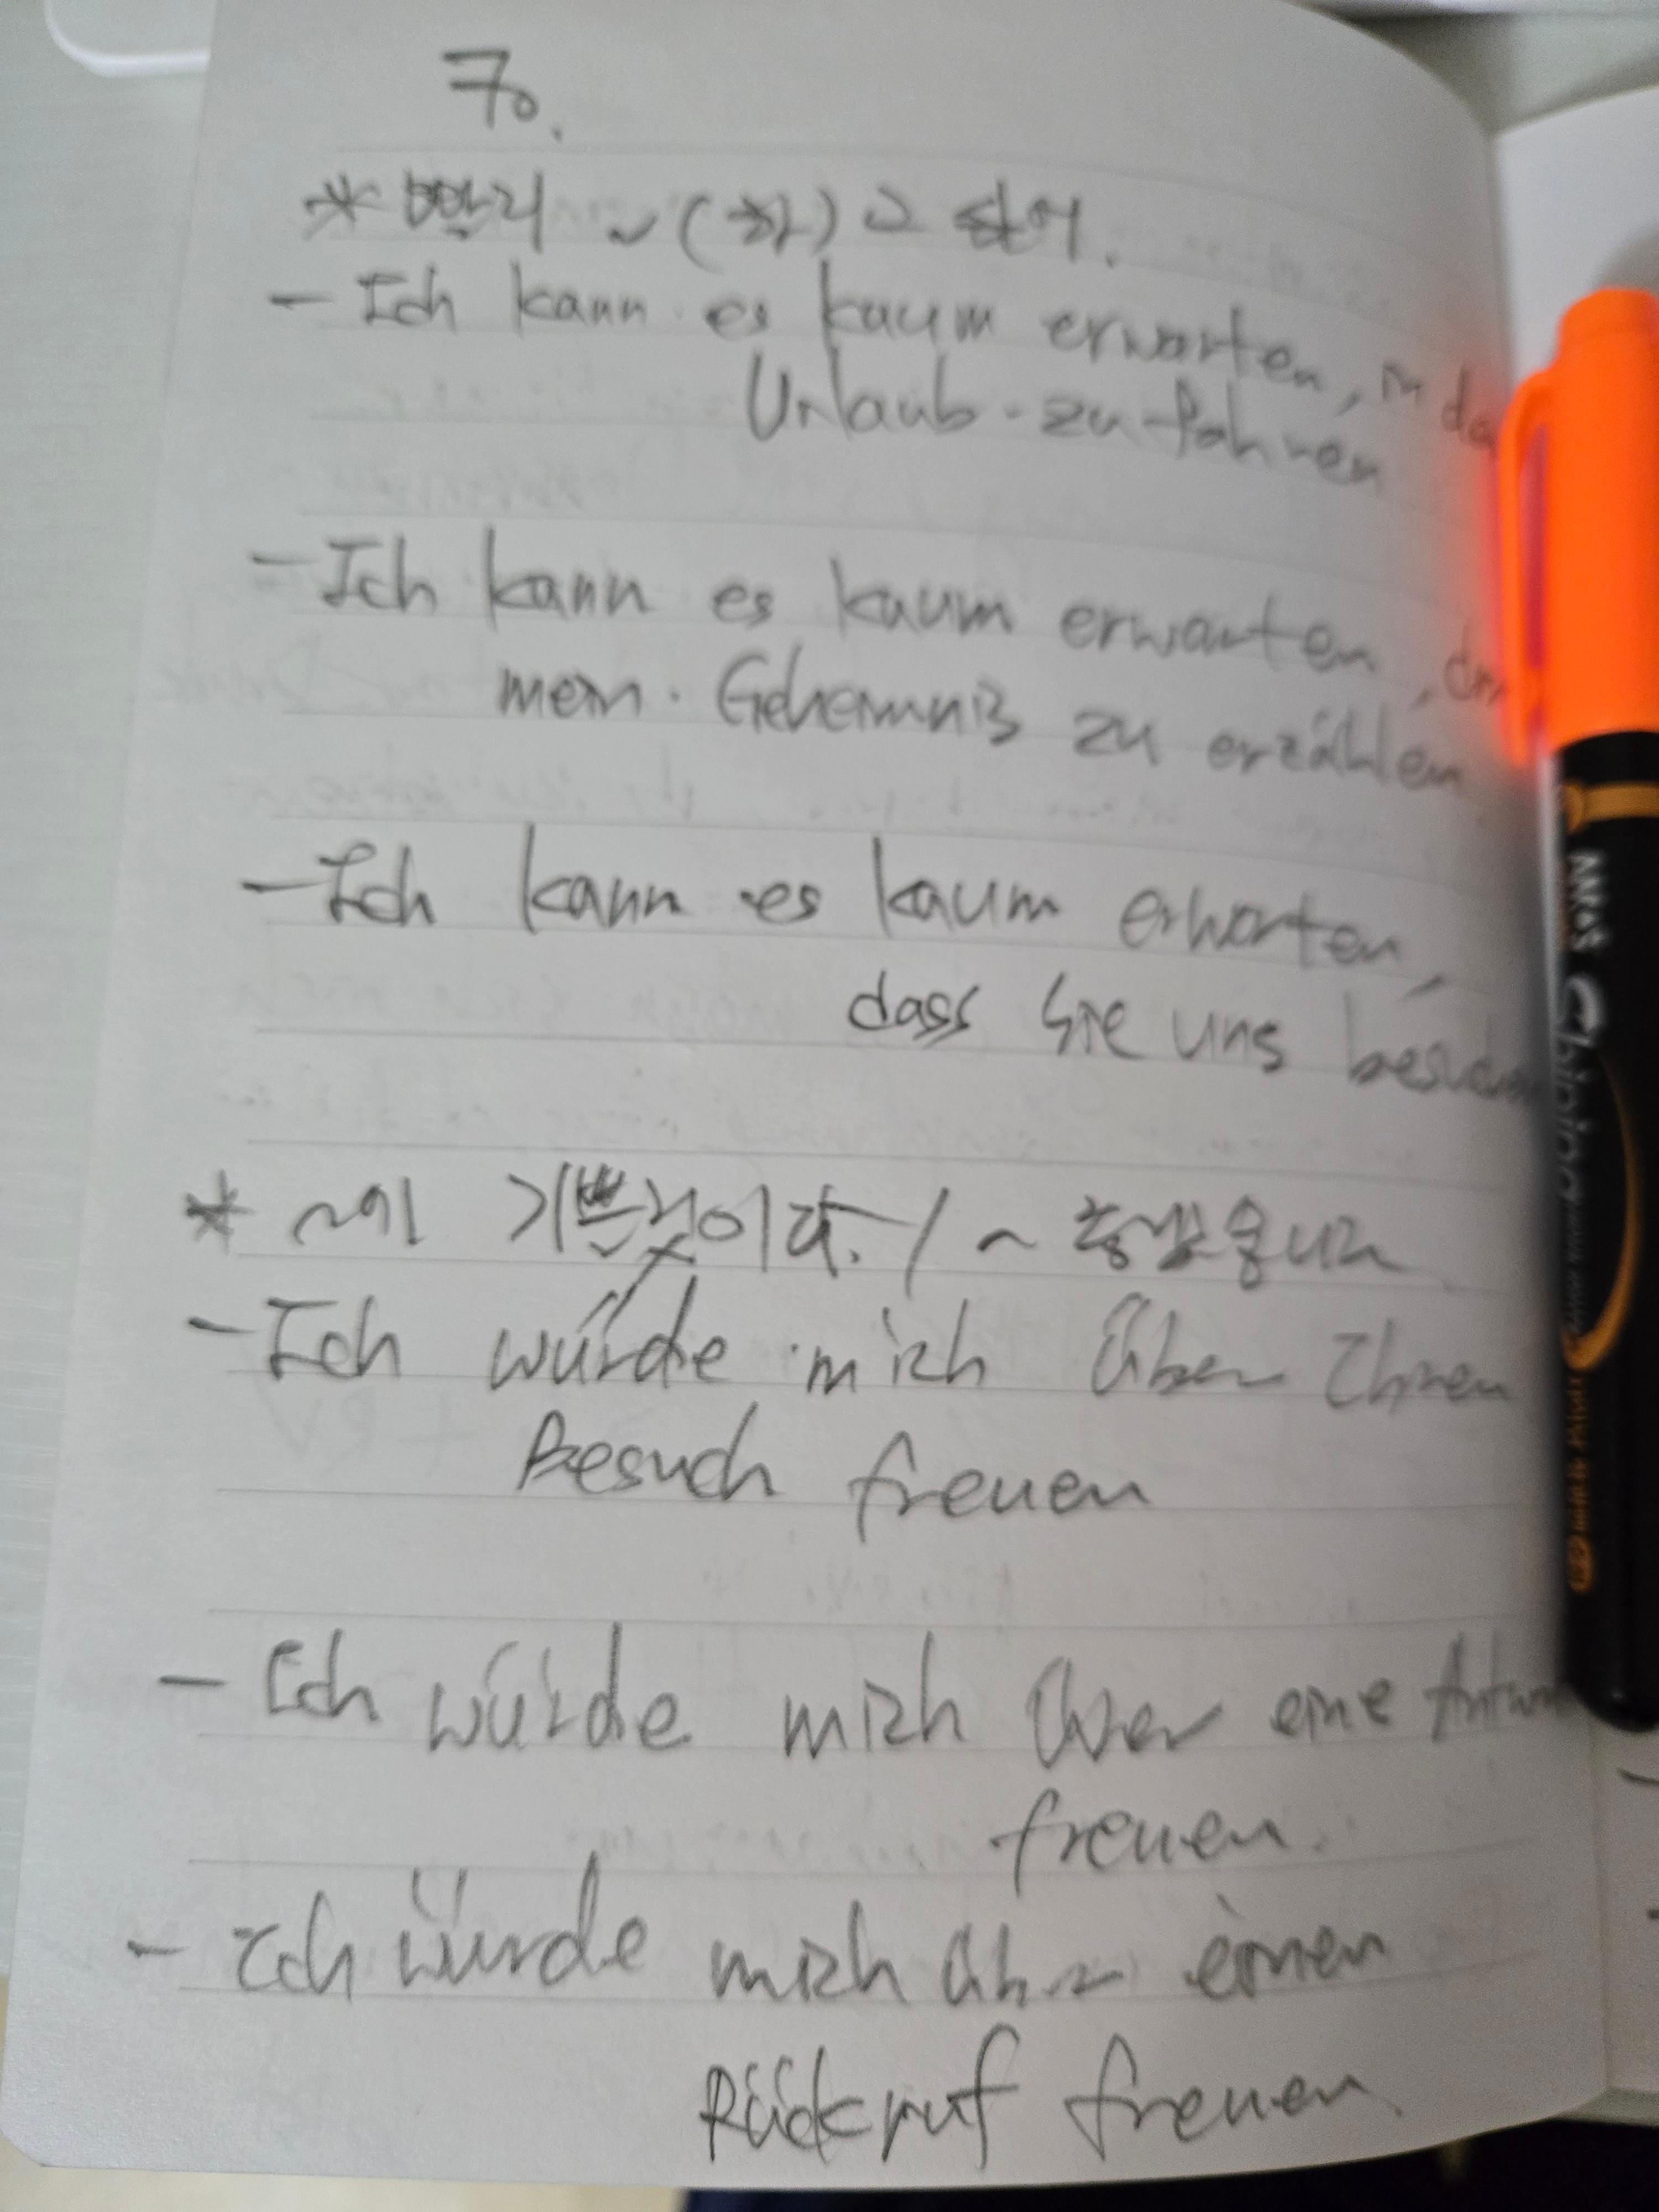 70.
* 빨리 ~ (하)고 싶어.
- Ich kann es kaum erwarten, in
Urlaub zu fahren
- Ich kann es kaum erwarten,
mein Geheimniß zu erzählen
- Ich kann es kaum erwarten,
dass Sie uns
* ~에 기쁠 것이다. / ~
- Ich würde mich über Ihren
Besuch freuen
- Ich würde mich über eine
freuen.
- Ich würde mich über einen
Rückruf freuen.